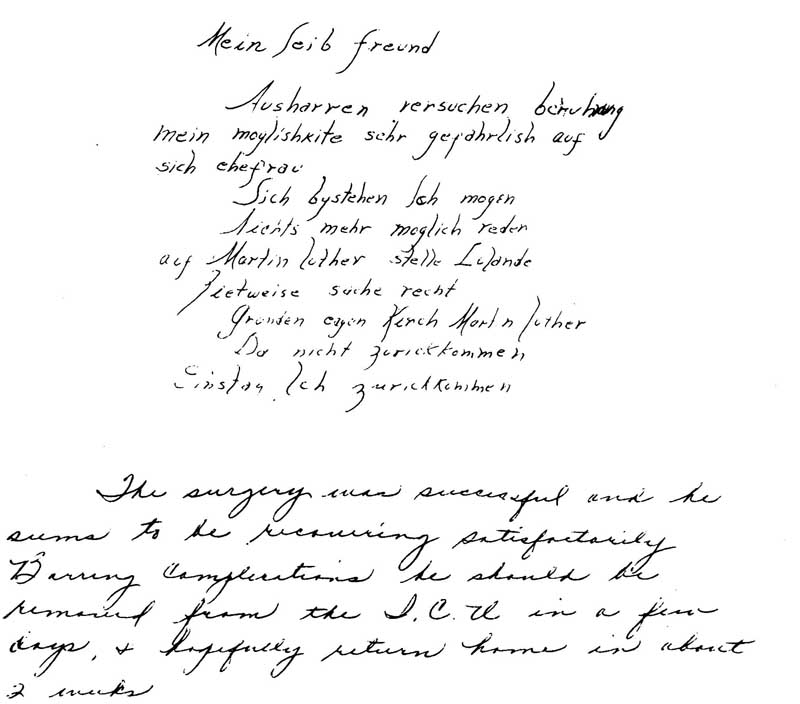 Mein Leib freund
Ausharren versuchen beruhung
mein moglishkite sehr gefahrlish auf
sich ehefrau
Sich bystehen Ich mogen
Nichts mehr moglich reden
auf Martin luther stelle
suche recht
Grunden eigen Kirch Martin luther
Da nicht zurickkommen
Einstag Ich zurickkommen
The surgery was successful and he
seems to be recovering satisfactorily
Barring complications he should be
removed from the I.C.U in a few
days, & hopefully return home in about
2 weeks